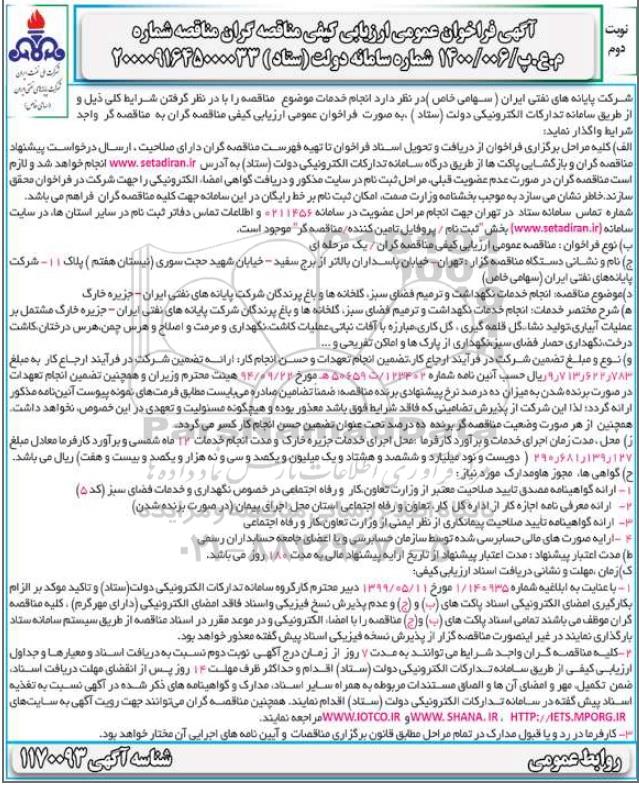 نوبت دوم
آگهی فراخوان عمومی ارزیابی کیفی مناقصه گران مناقصه شماره
م.ع.پ/۱۴۰۰/۰۰۶ شماره سامانه دولت (ستاد) ۲۰۰۰۰۹۱۶۴۵۰۰۰۰۳۳
شرکت ملی نفت ایران
شرکت پایانه های نفتی ایران
(سهامی خاص)
شرکت پایانه های نفتی ایران (سهامی خاص) در نظر دارد انجام خدمات موضوع مناقصه را با در نظر گرفتن شرایط کلی ذیل و
از طریق سامانه تدارکات الکترونیکی دولت (ستاد)، به صورت فراخوان عمومی ارزیابی کیفی مناقصه گران به مناقصه گر واجد
شرایط واگذار نماید:
الف) کلیه مراحل برگزاری فراخوان از دریافت و تحویل اسناد فراخوان تا تهیه فهرست مناقصه گران دارای صلاحیت، ارسال درخواست پیشنهاد
مناقصه گران و بازگشایی پاکت ها از طریق درگاه سامانه تدارکات الکترونیکی دولت (ستاد) به آدرس www.setadiran.ir انجام خواهد شد و لازم
است مناقصه گران در صورت عدم عضویت قبلی، مراحل ثبت نام در سایت مذکور و دریافت گواهی امضاء الکترونیکی را جهت شرکت در فراخوان محقق
سازند. خاطر نشان می سازد به موجب بخشنامه وزارت صمت، امکان ثبت نام بر خط رایگان در این سامانه جهت کلیه مناقصه گران فراهم می باشد.
شماره تماس سامانه ستاد در تهران جهت انجام مراحل عضویت در سامانه ۰۲۱۱۴۵۶ و اطلاعات تماس دفاتر ثبت نام در سایر استان ها، در سایت
سامانه (www.setadiran.ir) بخش "ثبت نام / پروفایل تامین کننده/مناقصه گر" موجود است.
ب) نوع فراخوان: مناقصه عمومی ارزیابی کیفی مناقصه گران / یک مرحله ای
ج) نام و نشانی دستگاه مناقصه گزار: تهران- خیابان پاسداران بالاتر از برج سفید – خیابان شهید حجت سوری (نیستان هفتم) پلاک ۱۱- شرکت
پایانه های نفتی ایران (سهامی خاص)
د) موضوع مناقصه: انجام خدمات نگهداشت و ترمیم فضای سبز، گلخانه ها و باغ پرندگان شرکت پایانه های نفتی ایران- جزیره خارگ
ه) شرح مختصر خدمات: انجام خدمات نگهداشت و ترمیم فضای سبز، گلخانه ها و باغ پرندگان شرکت پایانه های نفتی ایران- جزیره خارگ مشتمل بر
عملیات آبیاری، تولید نشاء، گل قلمه گیری، گل کاری، مبارزه با آفات نباتی، عملیات کاشت، نگهداری و مرمت و اصلاح و هرس چمن، هرس درختان، کاشت
درخت، نگهداری حصار فضای سبز، نگهداری از پارک ها و اماکن تفریحی و ...
و) نوع و مبلغ تضمین شرکت در فرآیند ارجاع کار، تضمین انجام تعهدات و حسن انجام کار: ارائه تضمین شرکت در فرآیند ارجاع کار به مبلغ
۹٫۷۱۳٫۶۲۲٫۷۸۳ ریال حسب آئین نامه شماره ۱۲۳۴۰۲/ت ۵۰۶۵۹ هـ مورخ ۹۴/۰۹/۲۲ هیئت محترم وزیران و همچنین تضمین انجام تعهدات
در صورت برنده شدن به میزان ده درصد نرخ پیشنهادی برنده مناقصه؛ ضمنا تضامین صادره می بایست مطابق فرمت های نمونه پیوست آئین نامه مذکور
ارائه گردد؛ لذا این شرکت از پذیرش تضامینی که فاقد شرایط فوق باشد معذور بوده و هیچگونه مسئولیت و تعهدی در این خصوص، نخواهد داشت.
همچنین از هر صورت وضعیت مناقصه گر برنده ده درصد تحت عنوان تضمین حسن انجام کار کسر می گردد.
ز) محل، مدت زمان اجرای خدمات و برآورد کارفرما: محل اجرای خدمات جزیره خارگ و مدت انجام خدمات ۱۲ ماه شمسی و برآورد کارفرما معادل مبلغ
۲۹۰٫۶۸۱٫۱۳۹٫۱۲۷ (دویست و نود میلیارد و ششصد و هشتاد و یک میلیون و یکصد و سی و نه هزار و یکصد و بیست و هفت) ریال می باشد.
ح) گواهی ها، مجوز ها و مدارک مورد نیاز:
۱- ارائه گواهینامه مصدق تایید صلاحیت معتبر از وزارت تعاون، کار و رفاه اجتماعی در خصوص نگهداری و خدمات فضای سبز (کد ۵)
۲- ارائه معرفی نامه اجازه کار از اداره کل کار، تعاون و رفاه اجتماعی استان محل اجرای پیمان (در صورت برنده شدن)
۳- ارائه گواهینامه تأیید صلاحیت پیمانکاری از نظر ایمنی از وزارت تعاون، کار و رفاه اجتماعی
۴- ارایه صورت های مالی حسابرسی شده توسط سازمان حسابرسی و یا اعضای جامعه حسابداران رسمی
ط) مدت اعتبار پیشنهاد: مدت اعتبار پیشنهاد از تاریخ ارایه پیشنهاد مالی به مدت ۱۸۰ روز می باشد.
ک) زمان، مهلت و نشانی دریافت اسناد ارزیابی کیفی:
۱- با عنایت به ابلاغیه شماره ۱/۱۴۰۹۳۵ مورخ ۱۳۹۹/۰۵/۱۱ دبیر محترم کارگروه سامانه تدارکات الکترونیکی دولت (ستاد) و تاکید موکد بر الزام
بکارگیری امضای الکترونیکی اسناد پاکت های (ب) و (ج) و عدم پذیرش نسخ فیزیکی و اسناد فاقد امضای الکترونیکی (دارای مهر گرم)، کلیه مناقصه
گران موظف می باشند تمامی اسناد پاکت های (ب) و (ج) مناقصه را با امضاء الکترونیکی و در موعد مقرر در اسناد مناقصه از طریق سیستم سامانه ستاد
بارگذاری نمایند در غیر اینصورت مناقصه گزار از پذیرش نسخه فیزیکی اسناد پیش گفته معذور خواهد بود.
۲- کلیه مناقصه گران واجد شرایط می توانند به مدت ۷ روز از زمان درج آگهی نوبت دوم نسبت به دریافت اسناد و معیارها و جداول
ارزیابی کیفی از طریق سامانه تدارکات الکترونیکی دولت (ستاد) اقدام و حداکثر ظرف مهلت ۱۴ روز پس از انقضای مهلت دریافت اسناد،
ضمن تکمیل، مهر و امضای آن ها و الصاق مستندات مربوطه به همراه سایر اسناد، مدارک و گواهینامه های ذکر شده در آگهی نسبت به تغذیه
اسناد پیش گفته در سامانه تدارکات الکترونیکی دولت (ستاد) اقدام نمایند. همچنین مناقصه گران می توانند جهت رویت آگهی به سایت های
WWW.IOTCO.IR و WWW.SHANA.IR ، HTTP://IETS.MPORG.IR مراجعه نمایند.
۳- کارفرما در رد و یا قبول مدارک در تمام مراحل مطابق قانون برگزاری مناقصات و آیین نامه های اجرایی آن مختار خواهد بود.
روابط عمومی
شناسه آگهی ۱۱۷۰۰۹۳